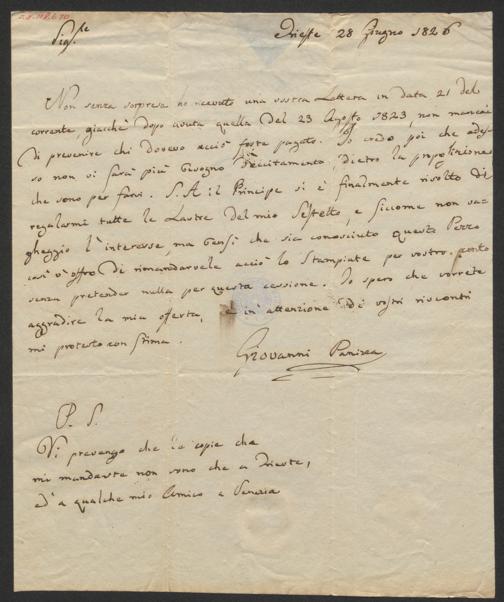 Sig.re
Trieste 28 Giugno 1826
Non senza sorpresa ho ricevuto una vostra Lettera in data 21 del
corrente, giacchè dopo avuta quella del 23 Agosto 1823, non mancai
di prevenire chi dovevo acciò foste pagato. Io credo poi che ades-
so non vi sarà più bisogno d'eccitamento, dietro la propolizione
che sono per farvi. S. A il Principe si è finalmente risolto di
regalarmi tutte le Lastre del mio Sestetto, e siccome non va-
gheggio l'interesse, ma bensì che sia conosciuto questo Pezzo
così v'offro di rimandarvele acciò lo Stampiate per vostro conto
senza pretender nulla per questa cessione. Io spero che vorrete
aggradire la mia offerta, e in attenzione di vostri riscontri
mi protesto con stima.
Giovanni Panizza
P. S.
Vi prevengo che le copie che
mi mandaste non sono che a Trieste,
ed a qualche mio Amico a Venezia